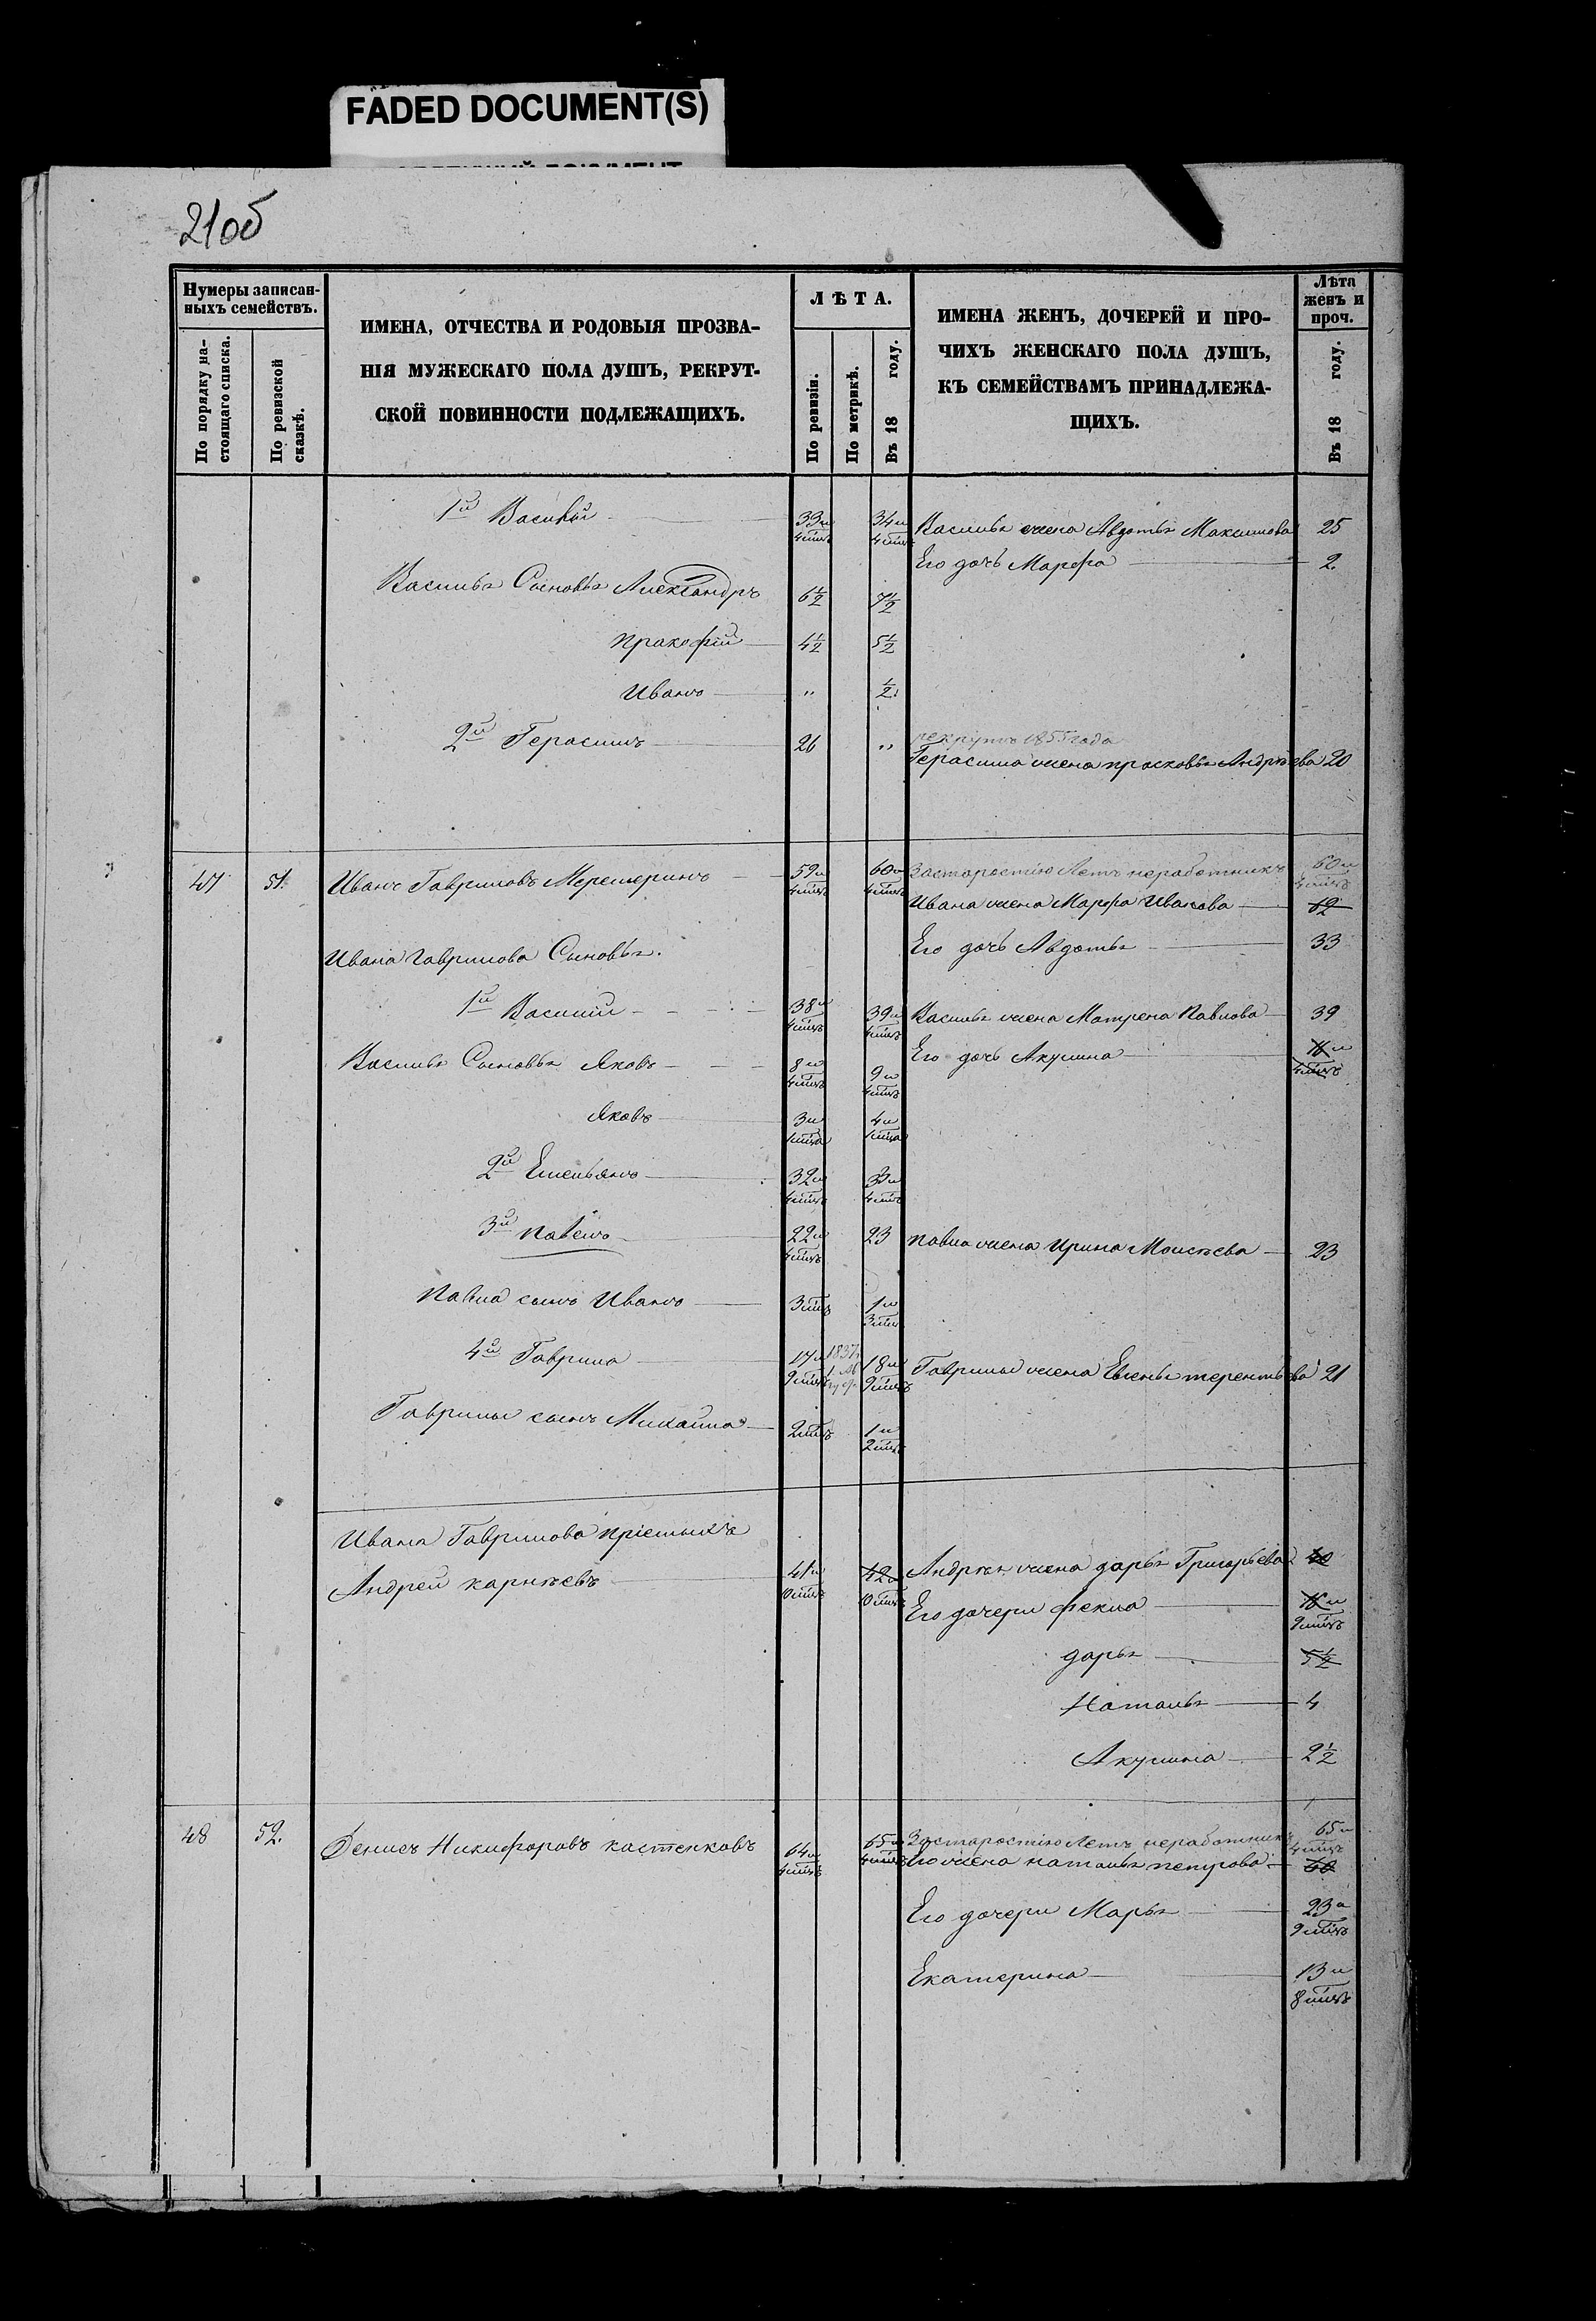 FADED DOCUMENT(S)
21об
Нумеры записан-
ныхъ семействъ.
По порядку на-
стоящаго списка.
По ревизской
сказкѣ.
ИМЕНА, ОТЧЕСТВА И РОДОВЫЯ ПРОЗВА-
НІЯ МУЖЕСКАГО ПОЛА ДУШЪ, РЕКРУТ-
СКОЙ ПОВИННОСТИ ПОДЛЕЖАЩИХЪ.
ЛѢТА.
По ревизіи.
По метрикѣ.
Въ 18 году.
ИМЕНА ЖЕНЪ, ДОЧЕРЕЙ И ПРО-
ЧИХЪ ЖЕНСКАГО ПОЛА ДУШЪ,
КЪ СЕМЕЙСТВАМЪ ПРИНАДЛЕЖА-
ЩИХЪ.
Лѣта
женъ и
проч.
Въ 18 году.
1й Василій 33 и 4 мцъ 34 и 4 мцъ Василья жена Авдотья Максимова 25
Его дочь Марфа 2
Василья Сыновья Александръ 6½ 7½
Пракофій 4½ 5½
Иванъ „ ½
2й Герасимъ 26 „ рекрутъ 1855 года
Герасима жена прасковья Андрѣева 20
47 51. Иванъ Гавриловъ 59 и 4 мцъ 60 и 4 мцъ Застаростію Летъ неработникъ 60 и 4 мцъ
Ивана жена Марфа Иванова 62
Ивана Гаврилова Сыновья. Его дочь Авдотья 33
1й Василій 38 и 4 мцъ 39 и 4 мцъ Василья жена Матрена Павлова 39
Василья Сыновья Яковъ 8 и 4 мцъ 9 и 4 мцъ Его дочь Акулина
Яковъ 3 и 1 мца 4 и 1 мца
2й Емельянъ 32 и 4 мцъ 33 и 4 мцъ
3й Павелъ 22 и 4 мцъ 23 Павла жена Ирина Моисѣева 23
Павла сынъ Иванъ 3 мцъ 1 и 3 мцъ
4й Гаврила 17 и 9 мцъ 1837 18 и 9 мцъ Гаврилы жена Евгенья терентьева 21
Гаврилы сынъ Михайла 2 мцъ 1 и 2 мцъ
Ивана Гаврилова пріемышъ
Андрей карнѣевъ 41 и 10 мцъ 42 и 10 мцъ Андрѣя жена дарья Григорьева 40
Его дочери фекла
дарья 5½
Наталья 4
Акулина 2½
48 52. Денисъ Никифоровъ костенковъ 64 и 4 мцъ 65 и 4 мцъ Застаростію Летъ неработникъ 65 и 4 мцъ
Его жена наталья петрова 60
Его дочери Марья 23 и 9 мцъ
Екатерина 13 и 8 мцъ